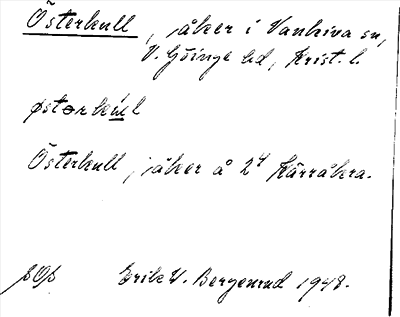 Österkull, jåker i Vankiva sn,
V. Göinge hd, Krist. l.
østərkul
Österkull, jåker å 24 Kärråkra.
Erik W. Bergenrud 1948.